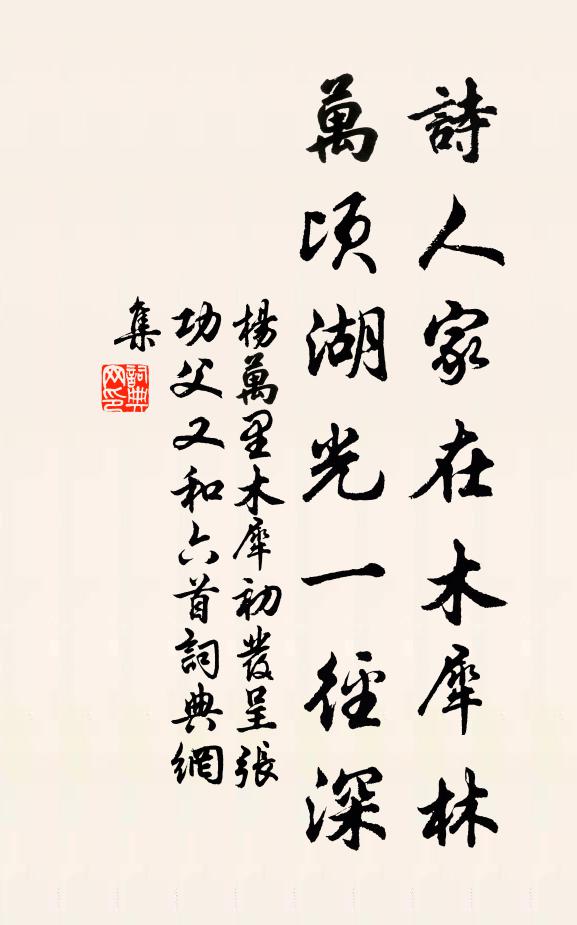 詩人家在木犀林
萬頃湖光一徑深
楊萬里木犀初發呈張
功父又和六首詞典網
集
詞典
网印